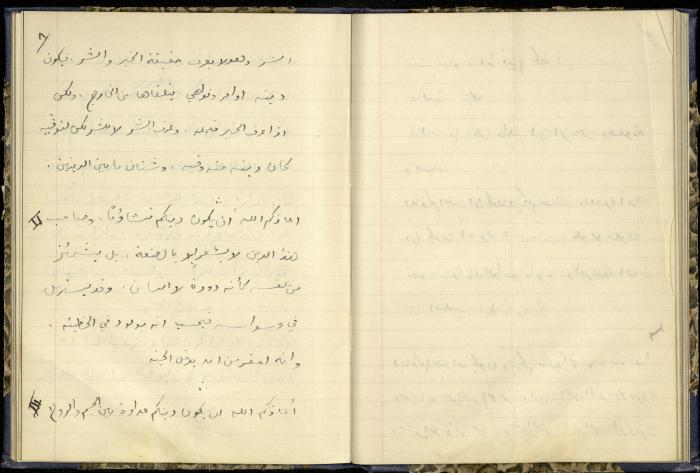 ٦
الشر وهو لا يعرف حقيقة الخير والشر، فيكون
دينه اوامر ونواهي يتلقاها من الخارج، ولكن
اذا عرف الخير فعمله، وعرف الشر لا للشر لكن لتوقيه
كان دينه منه وفيه، وشتان ما بين الدينين.
II اعاذكم الله ان يكون دينكم تشاؤمًا، وصاحب
هذا الدين لا يشعر الا بالضعة، بل يشمئز
من نفسه كأنه دودة لا انسان، وقد يسترسل
في وسواسه فيحسب انه مولود في الخطيئة.
وانه احقر من ان يدخل الجنة
III أعاذكم الله ان يكون دينكم عداوة بين الجسم والروح